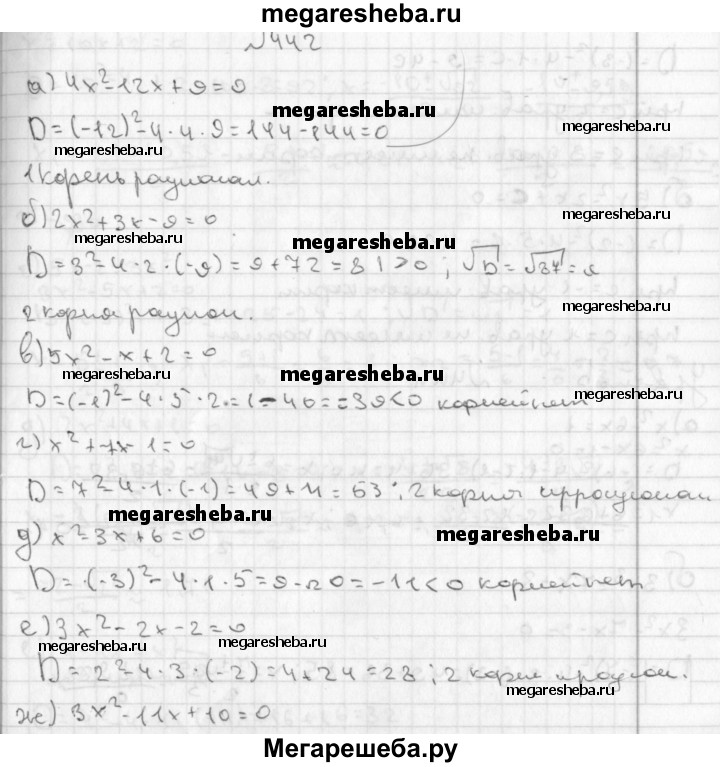 megaresheba.ru
№442
а) 4x²-12x+9=0
megaresheba.ru
D=(-12)²-4·4·9=144-144=0
megaresheba.ru
megaresheba.ru
1 корень рационал.
б) 2x²+3x-9=0
megaresheba.ru
megaresheba.ru
megaresheba.ru
D=3²-4·2·(-9)=9+72=81>0; √D=
megaresheba.ru
2 корня рацион.
в) 5x²-x+2=0
megaresheba.ru
megaresheba.ru
D=(-1)²-4·5·2=1-40=-39<0 корней нет
megaresheba.ru
г) x²+7x-1=0
D=7²-4·1·(-1)=49+4=53; 2 корня иррационал
megaresheba.ru
д) x²-3x+6=0
megaresheba.ru
D=(-3)²-4·1·5=9-20=-11<0 корней нет
е) 3x²-2x-2=0
megaresheba.ru
megaresheba.ru
D=2²-4·3·(-2)=4+24=28; 2 корня
megaresheba.ru
ж) 3x²-11x+10=0
Мегарешеба.ру